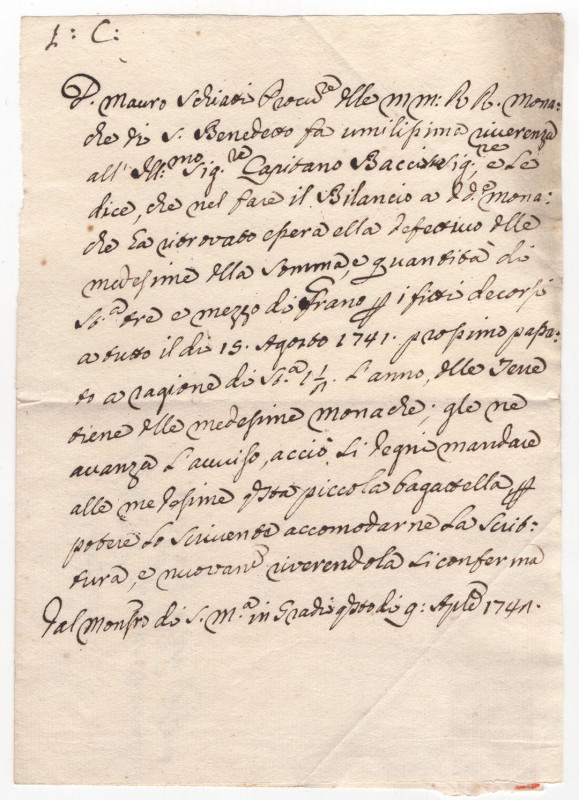 J: C:
D. Mauro Schiatti Procu.re dlle MM: RR. Mona=
che di S. Benedetto fà umilissima riverenza
all' Ill.mo Sig.re Capitano Bacci Sig.re, e Le
dice, che nel fare il Bilancio a dd.e Mona:
che ha ritrovato essere ella defettivo dlle
medesime dlla Somma, e quantità di
St.a tre e mezzo di Grano p i fitti decorsi
a tutto il dì 15. Agosto 1741. prossimo passa:
to a ragione di St.a 1 1/2. L'anno, dlle Terre
tiene dlle medesime Monache; gle ne
avanza L'avviso, acciò si degni mandare
alle medesime qsta piccola bagattella p
potere Lo Scrivente accomodarne La Scrit=
tura, e nuovam.e riverendola si conferma
Dal Monstro di S. M.a in Gradi qsto dì 9: Aple 1742.